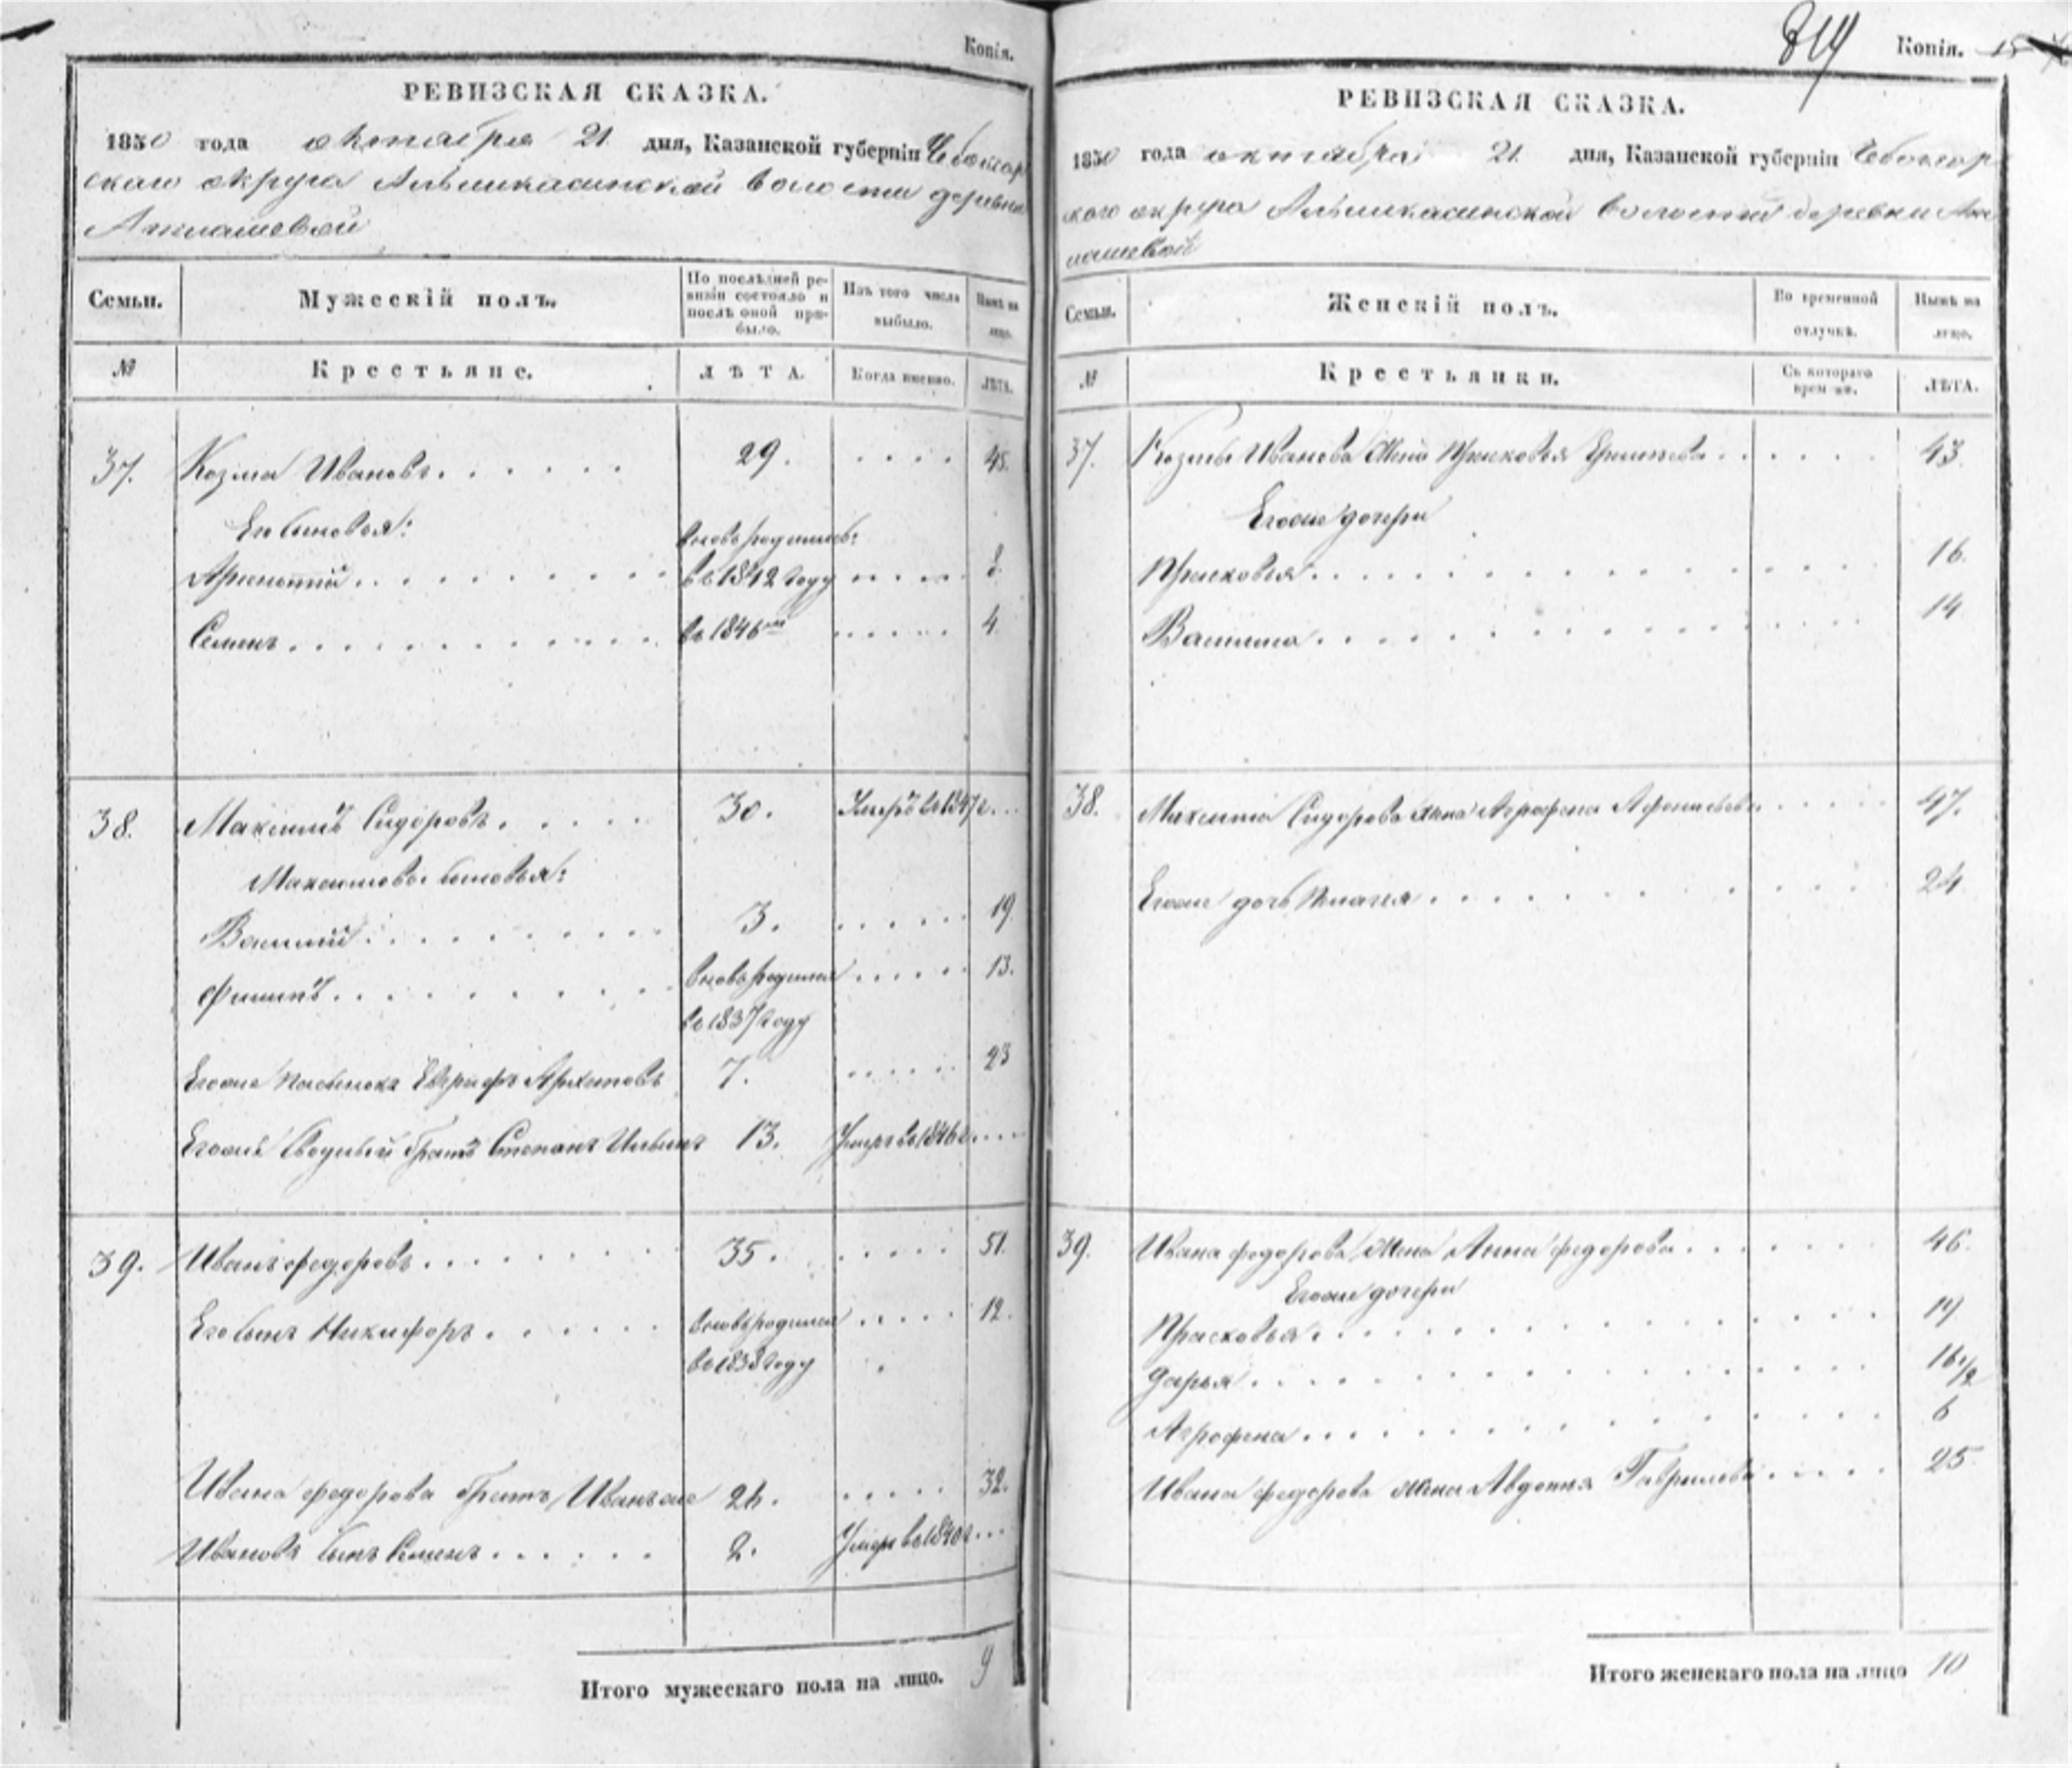 Копія.
РЕВИЗСКАЯ СКАЗКА.
1850 года октября 21 дня, Казанской губерніи Чебоксар
скаго округа Алымкасинской волости деревни
Семьи.
Мужескій полъ.
По послѣдней ре-
визіи состояло и
послѣ оной при-
было.
Изъ того числа
выбыло.
Нынѣ на
лицо.
№
Крестьяне.
ЛѢТА.
Когда именно.
ЛѢТА.
37. Козма Ивановъ. 29.
Его сыновья: вновь родились:
въ 1842 году 8
Семенъ въ 1846мъ 4
38. Максимъ Сидоровъ. 30. Умеръ въ 1847 г.
Максимовы сыновья:
Василій 3. 19.
Филипъ вновь родился 13.
въ 1837 году
Егоже пасынокъ Евграфъ Архиповъ 7. 23
Егоже сводный братъ Степанъ Ильинъ 13. Умеръ въ 1846 г.
39. Иванъ Федоровъ 35. 51.
Его сынъ Никифоръ вновь родился 12.
въ 1838 году
Ивана Федорова братъ Иванъ же 32.
Ивановъ сынъ Семенъ 2. Умеръ въ 1840 г.
Итого мужескаго пола на лицо. 9
814
Копія.
РЕВИЗСКАЯ СКАЗКА.
1850 года октября 21 дня, Казанской губерніи Чебоксар
скаго округа Алымкасинской волости деревни
Семьи.
Женскій полъ.
Во временной
отлучкѣ.
Нынѣ на
лицо.
№
Крестьянки.
Съ котораго
времени.
ЛѢТА.
37. Козмы Иванова жена Прасковья 43.
Егоже дочери
Прасковья 16.
14
38. Максима Сидорова жена Аграфена 47.
Егоже дочь Пелагея 24
39. Ивана Федорова жена Анна Федорова 46.
Егоже дочери
Прасковья 19
Дарья 16 1/2
Аграфена 6
Ивана Федорова жена Авдотья Гаврилова 25
Итого женскаго пола на лицо 10